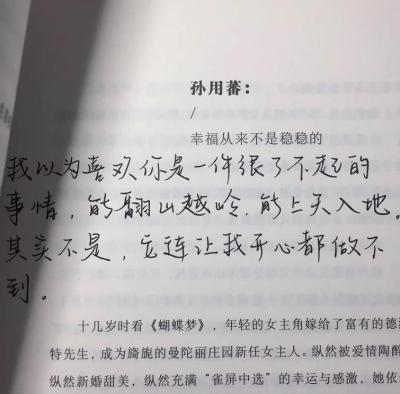 孙用蕃：
/
幸福从来不是稳稳的
我以为喜欢你是一件很了不起的
事情，能翻山越岭，能上天入地。
其实不是，它连让我开心都做不
到。
十几岁时看《蝴蝶梦》，年轻的女主角嫁给了富有的德
特先生，成为旖旎的曼陀丽庄园新任女主人。纵然被爱情陶醉
纵然新婚甜美，纵然充满“雀屏中选”的幸运与感激，她依